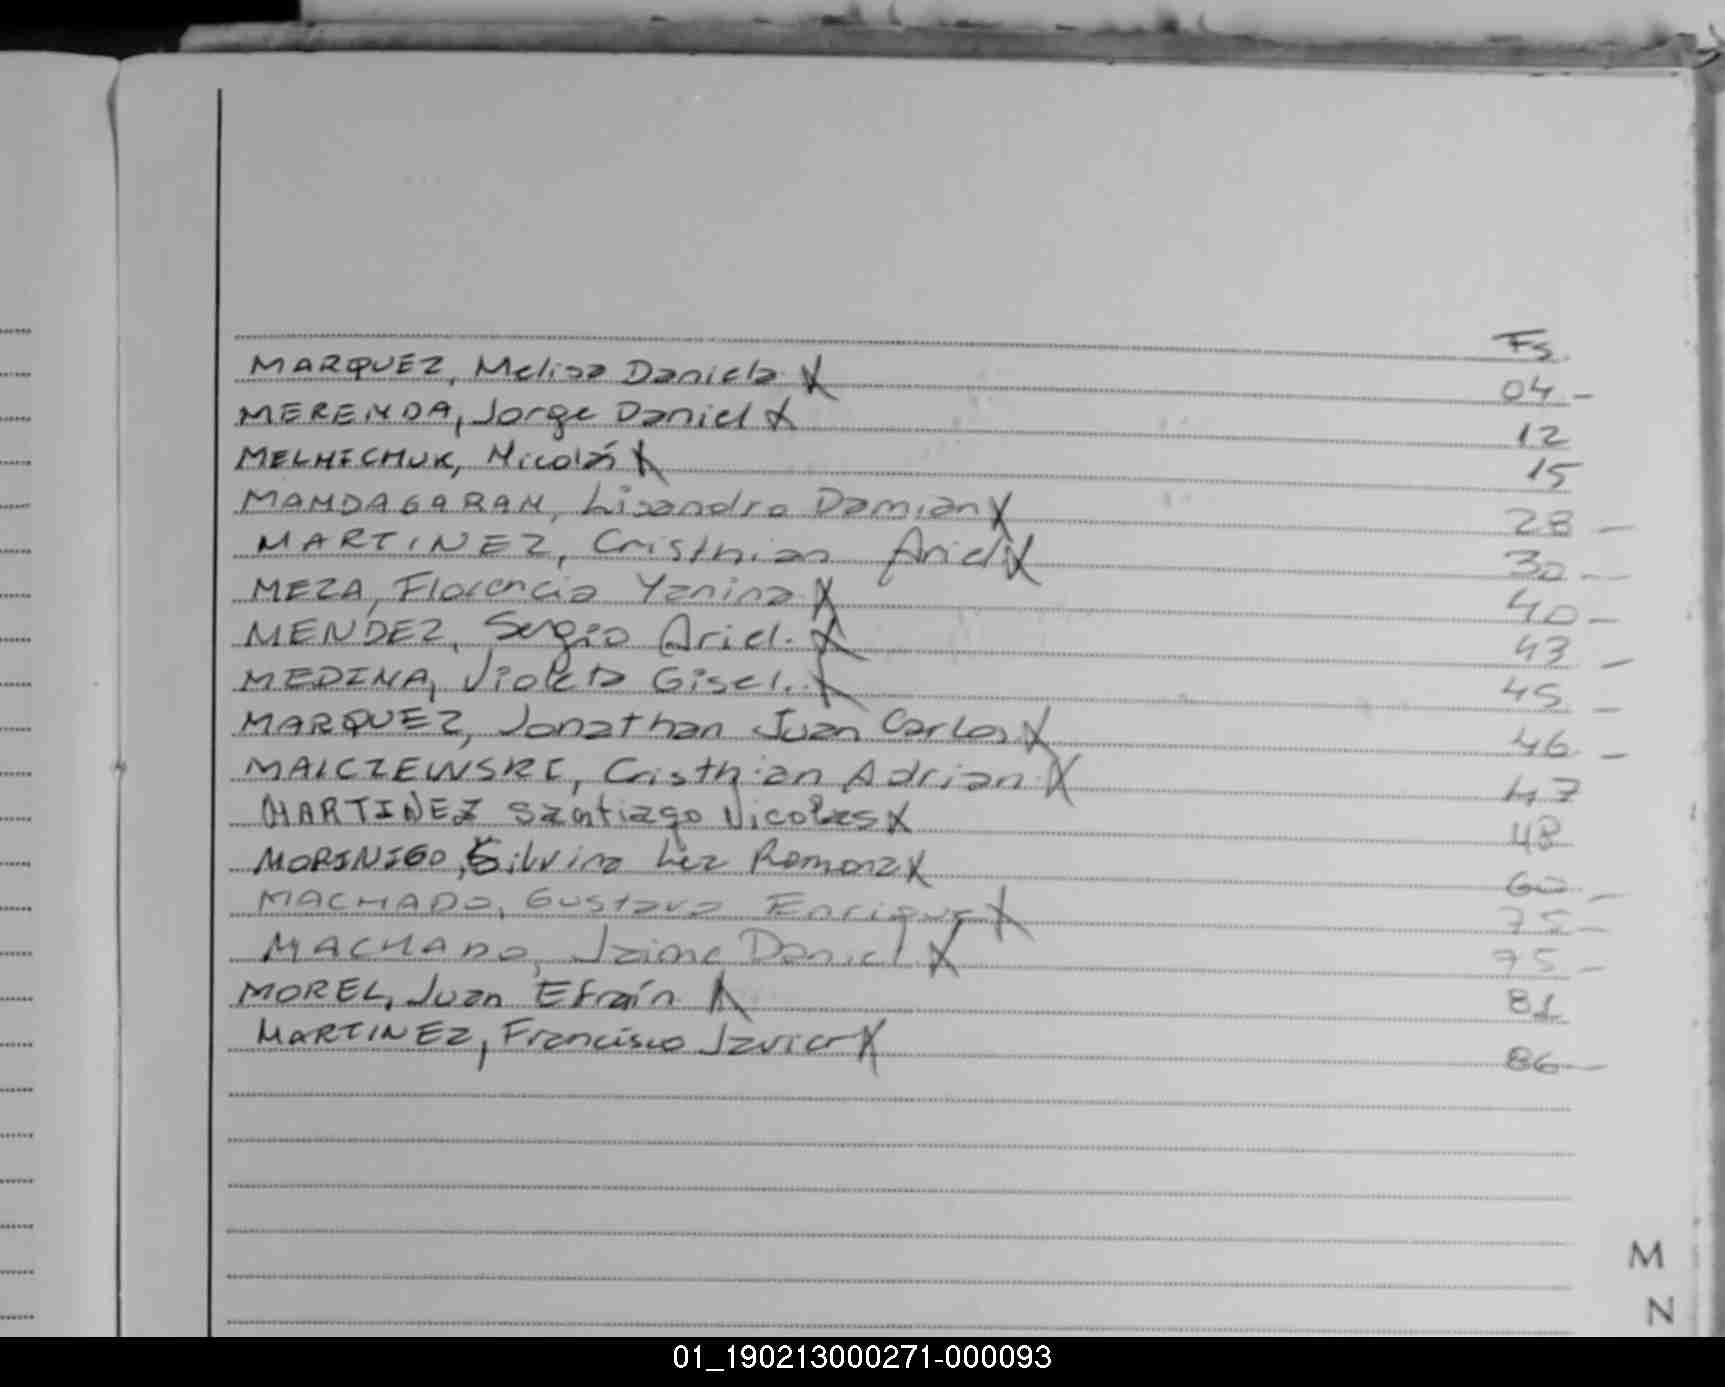 Fs.
MARQUEZ, Melisa Daniela X 04.-
MERENDA, Jorge Daniel X 12
MELNICHUK, Nicolás X 15
MANDAGARAN, Lisandro Damian X 28 -
MARTINEZ, Cristhian Ariel X 30 -
MEZA, Florencia Yanina X 40 -
MENDEZ, Sergio Ariel. X 43 -
MEDINA, Violeta Gisel. X 45 -
MARQUEZ, Jonathan Juan Carlos X 46 -
MAICZEWSKI, Cristhian Adrian X 47
MARTINEZ Santiago Nicolas X 48
MORINIGO, Silvina Liz Romona X 60 -
MACHADO, Gustavo Enrique X 75 -
MACHADO, Jaime Daniel X 75 -
MOREL, Juan Efraín X 81
MARTINEZ, Francisco Javier X 86 -
M
N
01_190213000271-000093